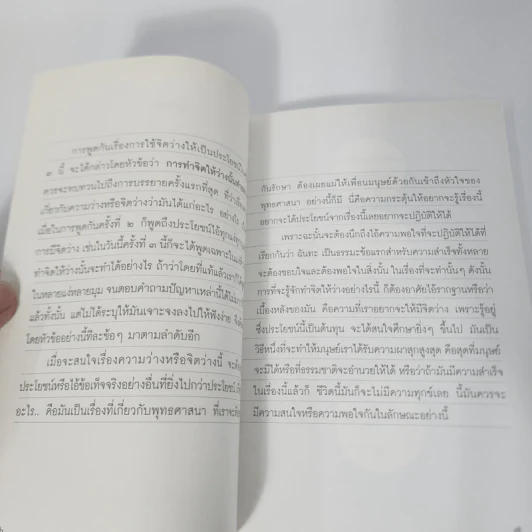 การพูดกันเรื่องการใช้จิตว่างให้เป็นประโยชน์
๓ นี้ จะได้กล่าวโดยหัวข้อว่า การทำจิตให้ว่างนั้น
ควรจะทบทวนไปถึงการบรรยายครั้งแรกที่สุด ที่ว่า
เกี่ยวกับความว่างหรือจิตว่างว่ามันได้แก่อะไร อย่างไร
เมื่อในการพูดกันครั้งที่ ๒ ก็พูดถึงประโยชน์
การมีจิตว่าง เช่นในวันนี้ครั้งที่ ๓ นี้ก็จะได้พูดเฉพาะใน
ทำจิตให้ว่างนั้นจะทำได้อย่างไร ถ้าว่าโดยที่แท้แล้วเราก็
ในหลายแง่หลายมุม จนตอบคำถามปัญหาเหล่านี้ได้
แล้วทั้งนั้น แต่ไม่ได้ระบุให้มันเจาะจงลงไปให้ฟังง่าย
โดยหัวข้ออย่างนี้ทีละข้อๆ มาตามลำดับอีก
เมื่อจะสนใจเรื่องความว่างหรือจิตว่างนี้
ประโยชน์หรือไอ้ข้อเท็จจริงอย่างอื่นที่ยิ่งไปกว่าประโยชน์
อะไร.. คือมันเป็นเรื่องที่เกี่ยวกับพุทธศาสนา ที่เราจะต้อง
กันรักษา ต้องเผยแผ่ให้เพื่อนมนุษย์ด้วยกันเข้าถึงหัวใจของ
พุทธศาสนา อย่างนี้ก็มี นี่คือความกระตุ้นให้อยากจะรู้เรื่องนี้
อยากจะได้ประโยชน์จากเรื่องนี้เลยอยากจะปฏิบัติให้ได้
เพราะฉะนั้นจะต้องนึกถึงไอ้ความพอใจที่จะปฏิบัติให้ได้ที่
เรียกกันว่า ฉันทะ เป็นธรรมะข้อแรกสำหรับความสำเร็จทั้งหลาย
จะต้องชอบใจและต้องพอใจในสิ่งนั้น ในเรื่องที่จะทำนั้นๆ ดังนั้น
การที่จะรู้จักทำจิตให้ว่างอย่างไรนี้ ก็ต้องอาศัยไอ้รากฐานหรือว่า
เบื้องหลังของมัน คือความที่เราอยากจะให้มีจิตว่าง เพราะรู้อยู่
ซึ่งประโยชน์นี้เป็นต้นทุน จะได้สนใจศึกษายิ่งๆ ขึ้นไป มันเป็น
วิธีหนึ่งที่จะทำให้มนุษย์เราได้รับความผาสุกสูงสุด คือสุดที่มนุษย์
จะมีได้หรือที่ธรรมชาติจะอำนวยให้ได้ หรือว่าถ้ามันมีความสำเร็จ
ในเรื่องนี้แล้วก็ ชีวิตนี้มันก็จะไม่มีความทุกข์เลย นี้มันควรจะ
มีความสนใจหรือความพอใจกันในลักษณะอย่างนี้